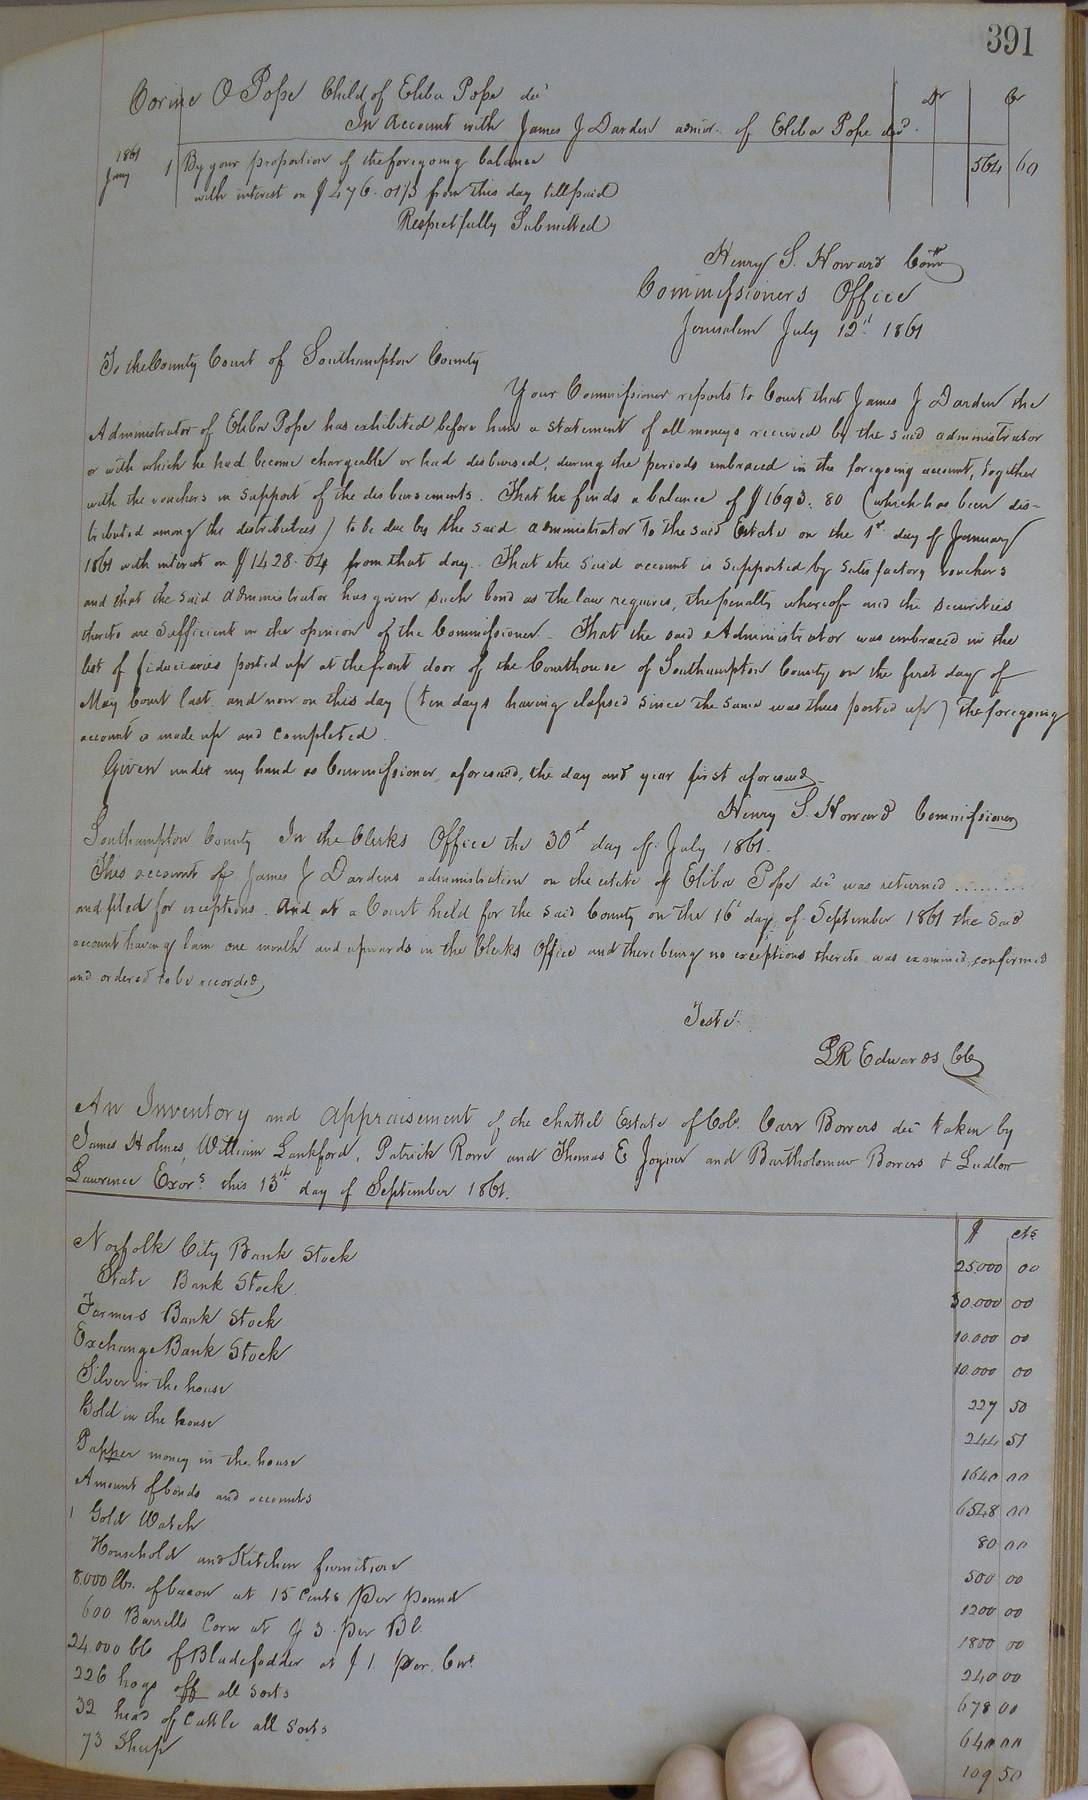 391
Corine O Pope Child of Eliba Pope dec'd
Dr Cr
In Account with James J Darden admr. of Eliba Pope dec'd.
1861
Jany 1 By your proportion of the foregoing balance 564 60
with interest on $476.01 1/3 from this day till paid
Respectfully Submitted
Henry S. Howard Comr
Commissioners Office
Jerusalem July 12th 1861
To the County Court of Southampton County
Your Commissioner reports to Court that James J Darden the
Administrator of Eliba Pope has exhibited before him a statement of all moneys received by the said administrator
or with which he had become chargeable or had disbursed, during the periods embraced in the foregoing account, together
with the vouchers in support of the disbursements. That he finds a balance of $1693.80 (which has been dis-
tributed among the distributees) to be due by the said administrator to the said Estate on the 1st day of January
1861 with interest on $1428.04 from that day. That the said account is supported by satisfactory vouchers
and that the said administrator has given such bond as the law requires, the penalty whereof and the securities
thereto are sufficient in the opinion of the Commissioner. That the said Administrator was embraced in the
list of fiduciaries posted up at the front door of the Courthouse of Southampton County on the first day of
May Court last. and now on this day (ten days having elapsed since the same was thus posted up) the foregoing
account is made up and completed.
Given under my hand as Commissioner aforesaid, the day and year first aforesaid
Henry S. Howard Commissioner
Southampton County In the Clerks Office the 30th day of July 1861.
This account of James J Dardens administration on the estate of Eliba Pope dec'd was returned .........
and filed for exceptions. And at a Court held for the said County on the 16th day of September 1861 the said
account having lain one month and upwards in the Clerks Office and there being no exceptions thereto was examined, confirmed
and ordered to be recorded,
Teste.
LR Edwards CC
An Inventory and Appraisement of the chattel Estate of Col. Carr Bowers dec taken by
James Holmes, William Lankford, Patrick Rowe and Thomas E Joyner and Bartholomew Bowers & Ludlow
Lawrence Exors this 13th day of September 1861.
$ cts
Norfolk City Bank Stock 25.000 00
State Bank Stock 30.000 00
Farmers Bank Stock 10.000 00
Exchange Bank Stock 10.000 00
Silver in the house 227 50
Gold in the house 244 51
Papper money in the house 1640 00
Amount of bonds and accounts 6548 00
1 Gold Watch 80 00
Household and Kitchen furniture 500 00
8.000 lbs. of bacon at 15 Cents per pound 1200 00
600 Barrells Corn at $3. per Bl. 1800 00
24.000 lbs of Bladefodder at $1. per. Cwt 240 00
226 hogs off all sorts 678 00
32 head of cattle all sorts 640 00
73 Sheep 109 50